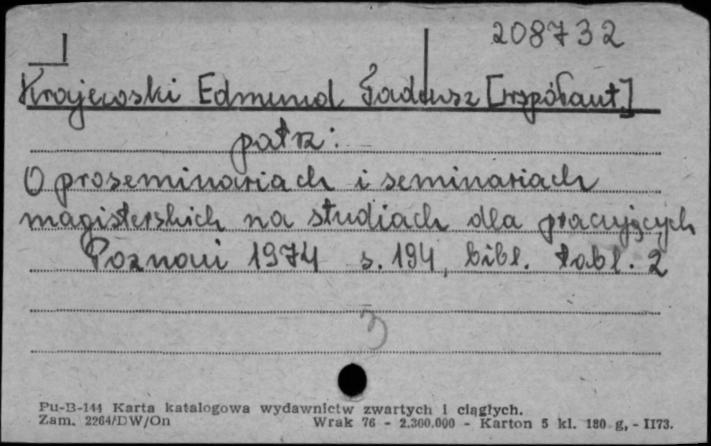 208732
Krajewski Edmund Tadeusz [współaut]
patrz:
O proseminariach i seminariach
magisterskich na studiach dla pracujących
Poznań 1974 s. 194, bibl. tabl. 2
3
Pu-B-144 Karta katalogowa wydawnictw zwartych i ciągłych.
Zam. 2264/DW/On Wrak 76 - 2.300.000 - Karton 5 kl. 180 g. - II73.